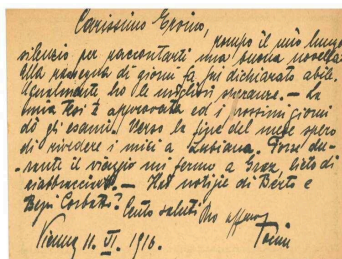 Carissimo Ervino,
rompo il mio lungo
silenzio per raccontarti una buona novella
Alla rassegna di giorni fa fui dichiarato abile.
Ugualmente ho le migliori speranze. — La
mia tesi è approvata ed i prossimi giorni
dò gli esami. Verso la fine del mese spero
di rivedere i miei a Lubiana. Forse du-
-rante il viaggio mi fermo a Graz lieto di
riabbracciarti. — Hai notizie di Berto e
Bepi Corbatti? Cento saluti tuo affmo
Vienna 11. VI. 1916. Tonin